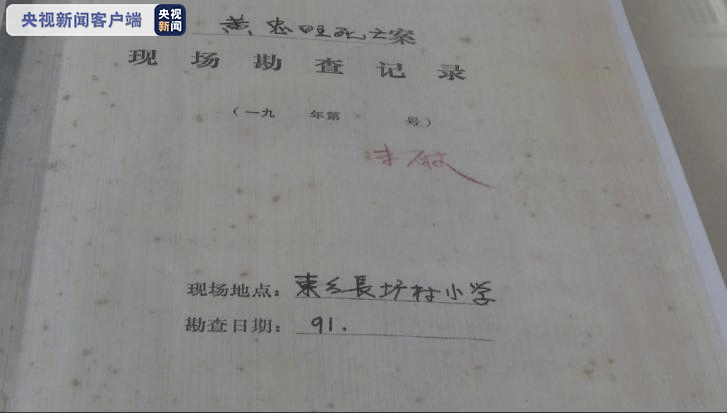 央视新闻客户端
央视
新闻
黄忠旺死亡案
现场勘查记录
(一九 年第 号)
现场地点：東乡長圩村小学
勘查日期：91.